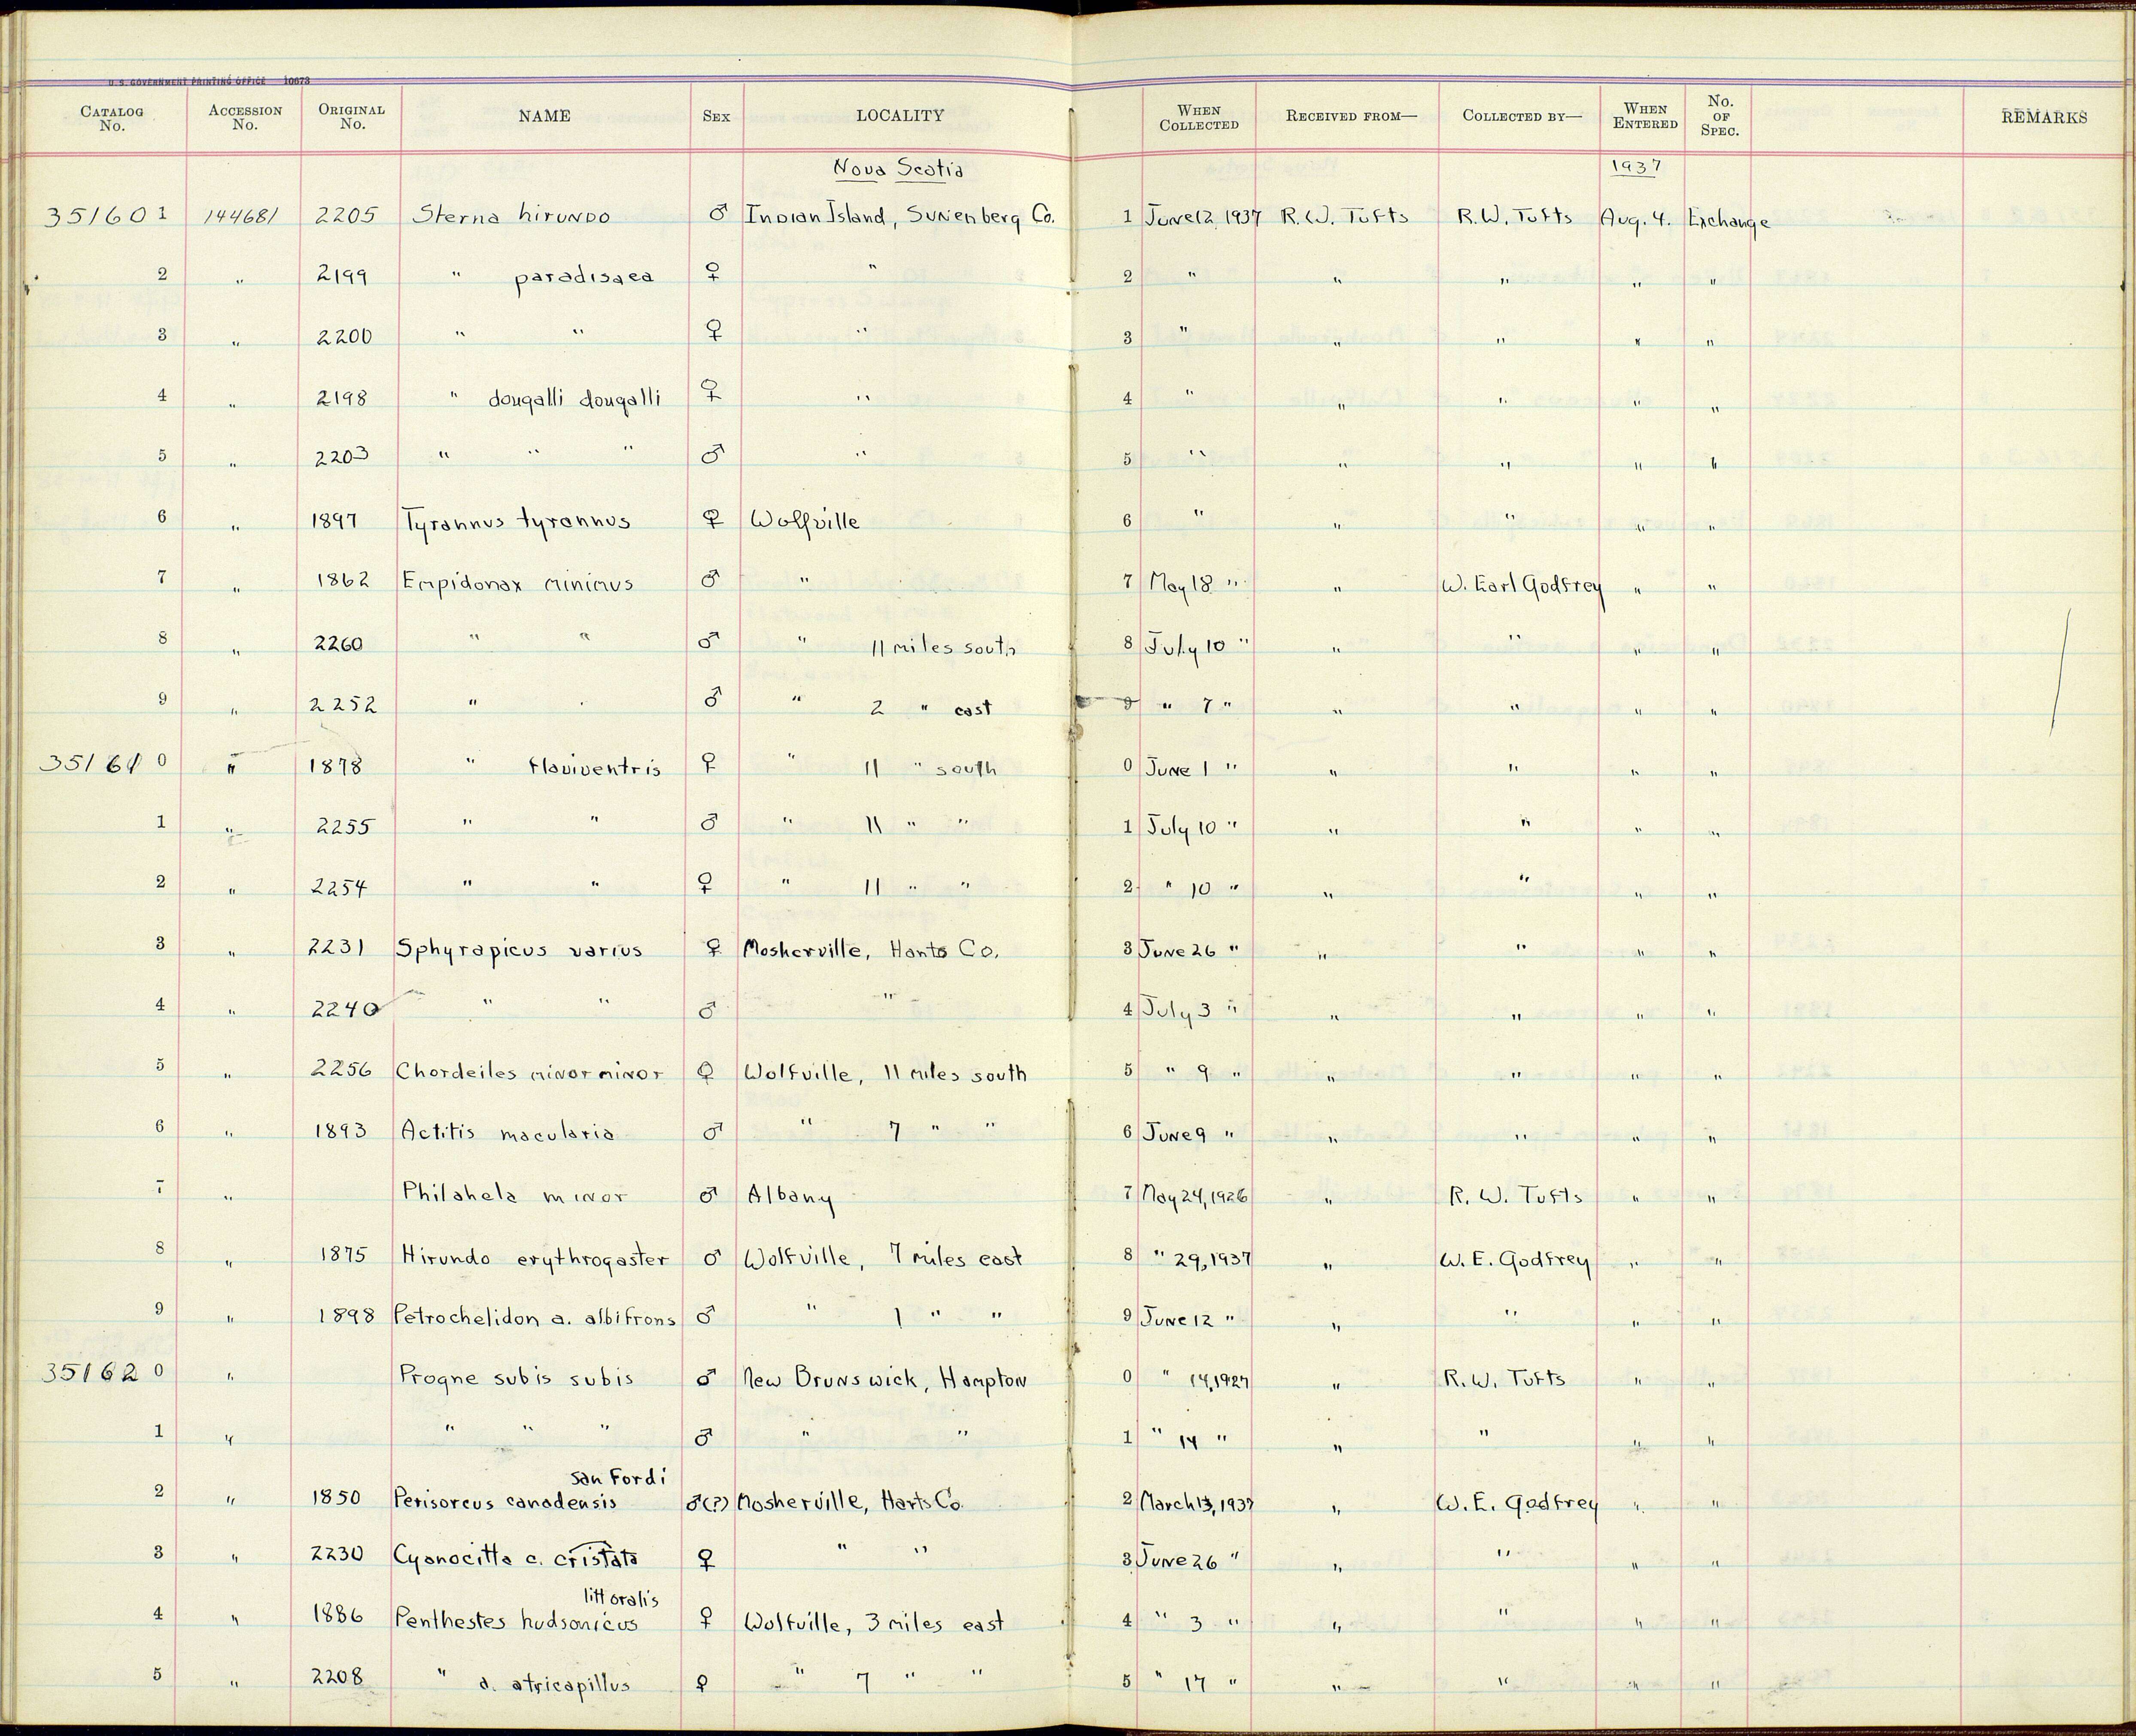 U. S. GOVERNMENT PRINTING OFFICE 10673
CATALOG No. ACCESSION No. ORIGINAL No. NAME SEX LOCALITY WHEN COLLECTED RECEIVED FROM— COLLECTED BY— WHEN ENTERED No. OF SPEC. REMARKS
Nova Scotia 1937
351601 144681 2205 Sterna hirundo ♂ Indian Island, Sunenberg Co. 1 June 12, 1937 R. W. Tufts R. W. Tufts Aug. 4. Exchange
2 " 2199 " paradisaea ♀ " 2 " " " " "
3 " 2200 " " ♀ " 3 " " " " "
4 " 2198 " dougalli dougalli ♀ " 4 " " " " "
5 " 2203 " " " ♂ " 5 " " " " "
6 " 1897 Tyrannus tyrannus ♀ Wolfville 6 " " " " "
7 " 1862 Empidonax minimus ♂ " 7 May 18 " " W. Earl Godfrey " "
8 " 2260 " " ♂ " 11 miles south 8 July 10 " " " " "
9 " 2252 " " ♂ " 2 " east 9 " 7 " " " " "
351610 " 1878 " flaviventris ♀ " 11 " south 0 June 1 " " " " "
1 " 2255 " " ♂ " 11 " " 1 July 10 " " " " "
2 " 2254 " " ♀ " 11 " " 2 " 10 " " " " "
3 " 2231 Sphyrapicus varius ♀ Mosherville, Hants Co. 3 June 26 " " " " "
4 " 2240 " " ♂ " 4 July 3 " " " " "
5 " 2256 Chordeiles minor minor ♀ Wolfville, 11 miles south 5 " 9 " " " " "
6 " 1893 Actitis macularia ♂ " 7 " " 6 June 9 " " " " "
7 " Philohela minor ♂ Albany 7 May 24, 1926 " R. W. Tufts " "
8 " 1875 Hirundo erythrogaster ♂ Wolfville, 7 miles east 8 " 29, 1937 " W. E. Godfrey " "
9 " 1898 Petrochelidon a. albifrons ♂ " 1 " " 9 June 12 " " " " "
351620 " Progne subis subis ♂ New Brunswick, Hampton 0 " 14, 1927 " R. W. Tufts " "
1 " " " " ♂ " " 1 " 14 " " " " "
sanfordi
2 " 1850 Perisoreus canadensis ♂(?) Mosherville, Hants Co. 2 March 13, 1937 " W. E. Godfrey " "
3 " 2230 Cyanocitta c. cristata ♀ " " 3 June 26 " " " " "
littoralis
4 " 1886 Penthestes hudsonicus ♀ Wolfville, 3 miles east 4 " 3 " " " " "
5 " 2208 " a. atricapillus ♀ " 7 " " 5 " 17 " " " " "